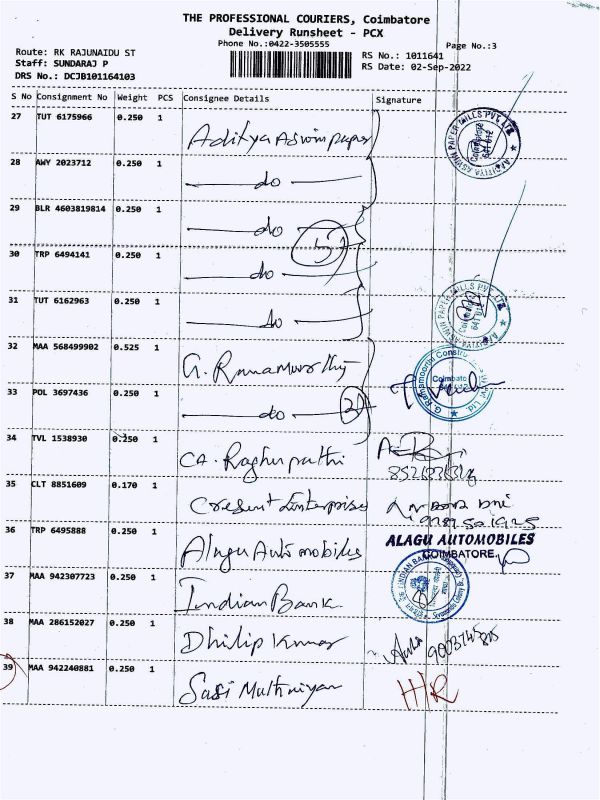 THE PROFESSIONAL COURIERS, Coimbatore
Delivery Runsheet - PCX
Phone No.:0422-3505555
Page No.:3
Route: RK RAJUNAIDU ST
Staff: SUNDARAJ P
DRS No.: DCJB101164103
RS No.: 1011641
RS Date: 02-Sep-2022
S No Consignment No Weight PCS Consignee Details Signature
27 TUT 6175966 0.250 1 Aditya Aswin paper
ADITIYA ASWIN PAPER MILLS PVT LTD Coimbatore 641 012
28 AWY 2023712 0.250 1 do
29 BLR 4603819814 0.250 1 do
30 TRP 6494141 0.250 1 do
31 TUT 6162963 0.250 1 do
ASWIN PAPER MILLS PVT LTD Coimbatore 641 012
32 MAA 568499902 0.525 1 G. Ramamurthy
G. Ramamoorthi Constru Pvt. Ltd. Coimbato
33 POL 3697436 0.250 1 do
34 TVL 1538930 0.250 1 CA. Raghupathi
35 CLT 8851609 0.170 1 Cresent Enterprises
36 TRP 6495888 0.250 1 Alagu Automobiles
ALAGU AUTOMOBILES
COIMBATORE.
37 MAA 942307723 0.250 1 Indian Bank
INDIAN BANK
38 MAA 286152027 0.250 1 Dhilip Kumar
39 MAA 942240881 0.250 1 Sasi Muthniyan